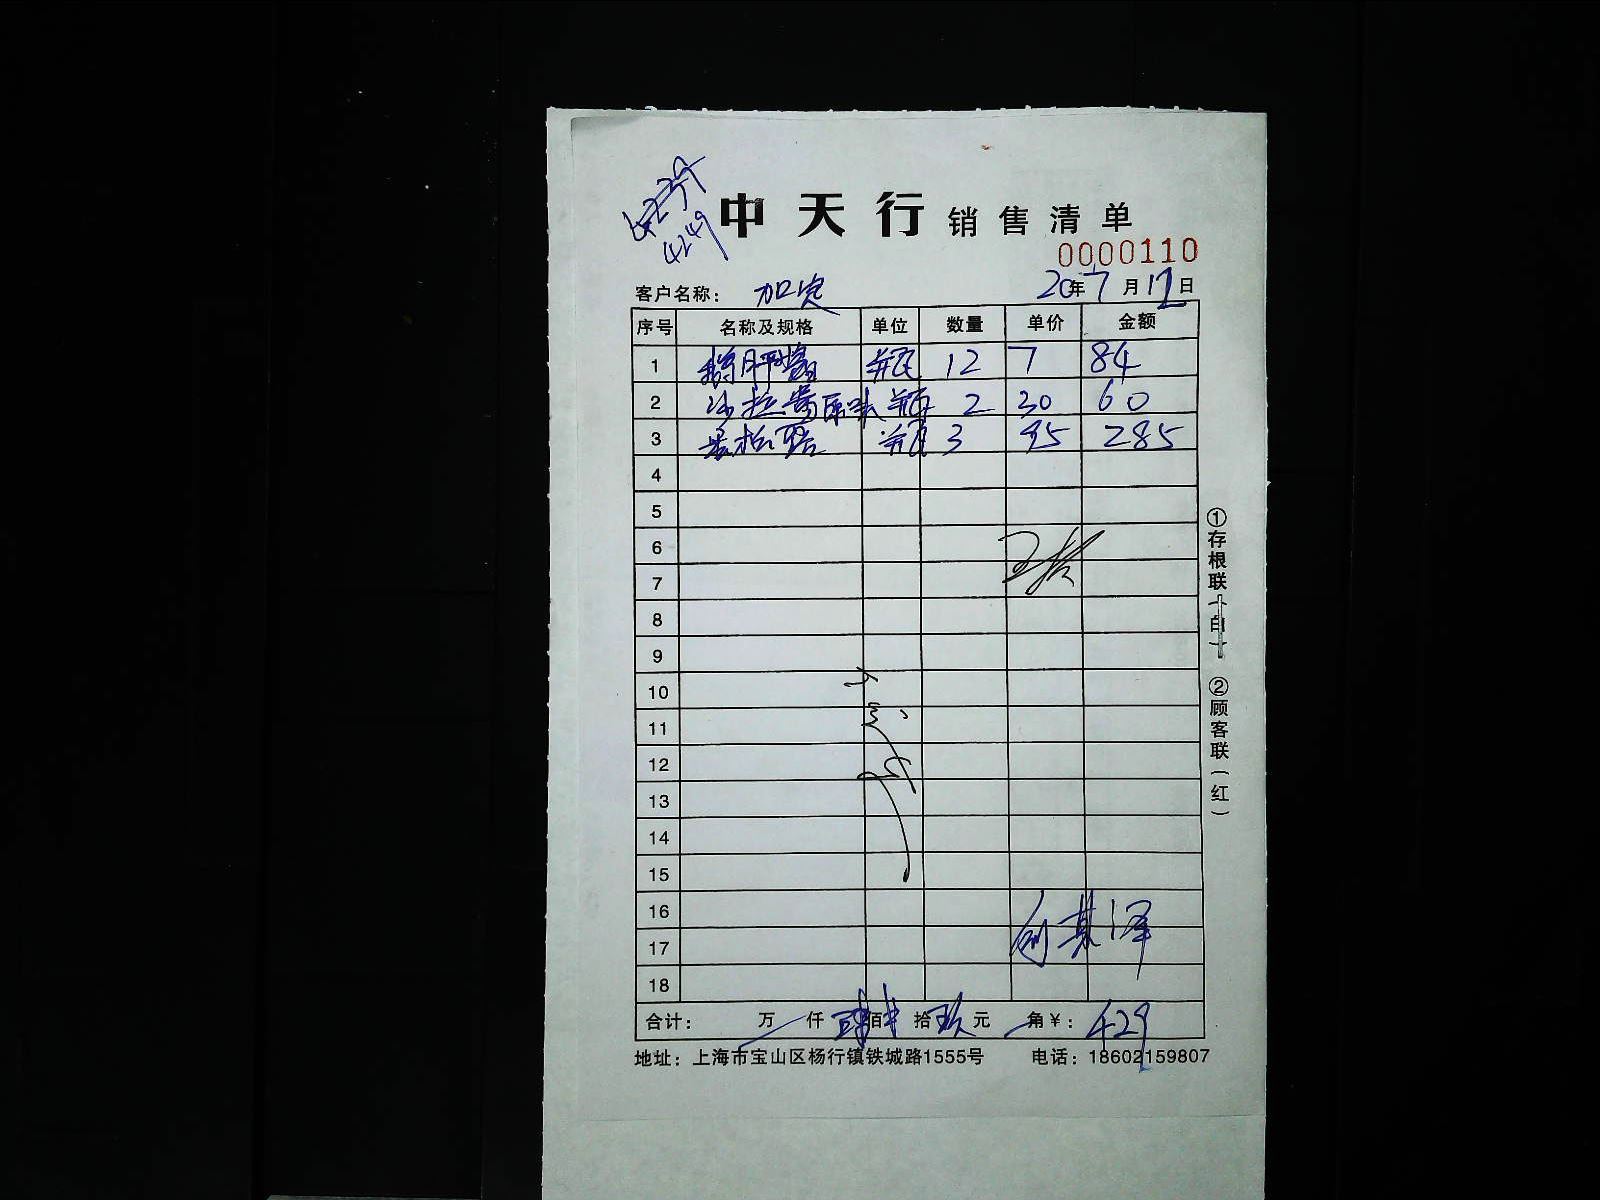 4249
中天行 销售清单
0000110
客户名称： 加定 20年7月12日
序号 名称及规格 单位 数量 单价 金额
1 鹅肝酱 瓶 12 7 84
2 沙拉酱原味 瓶 2 30 60
3 瓶 3 95 285
4
5
6
7
8
9
10
11
12
13
14
15
16
17
18
合计： 万 仟 佰 拾 元 角 ¥： 429
地址：上海市宝山区杨行镇铁城路1555号 电话：18602159807
①存根联（白） ②顾客联（红）